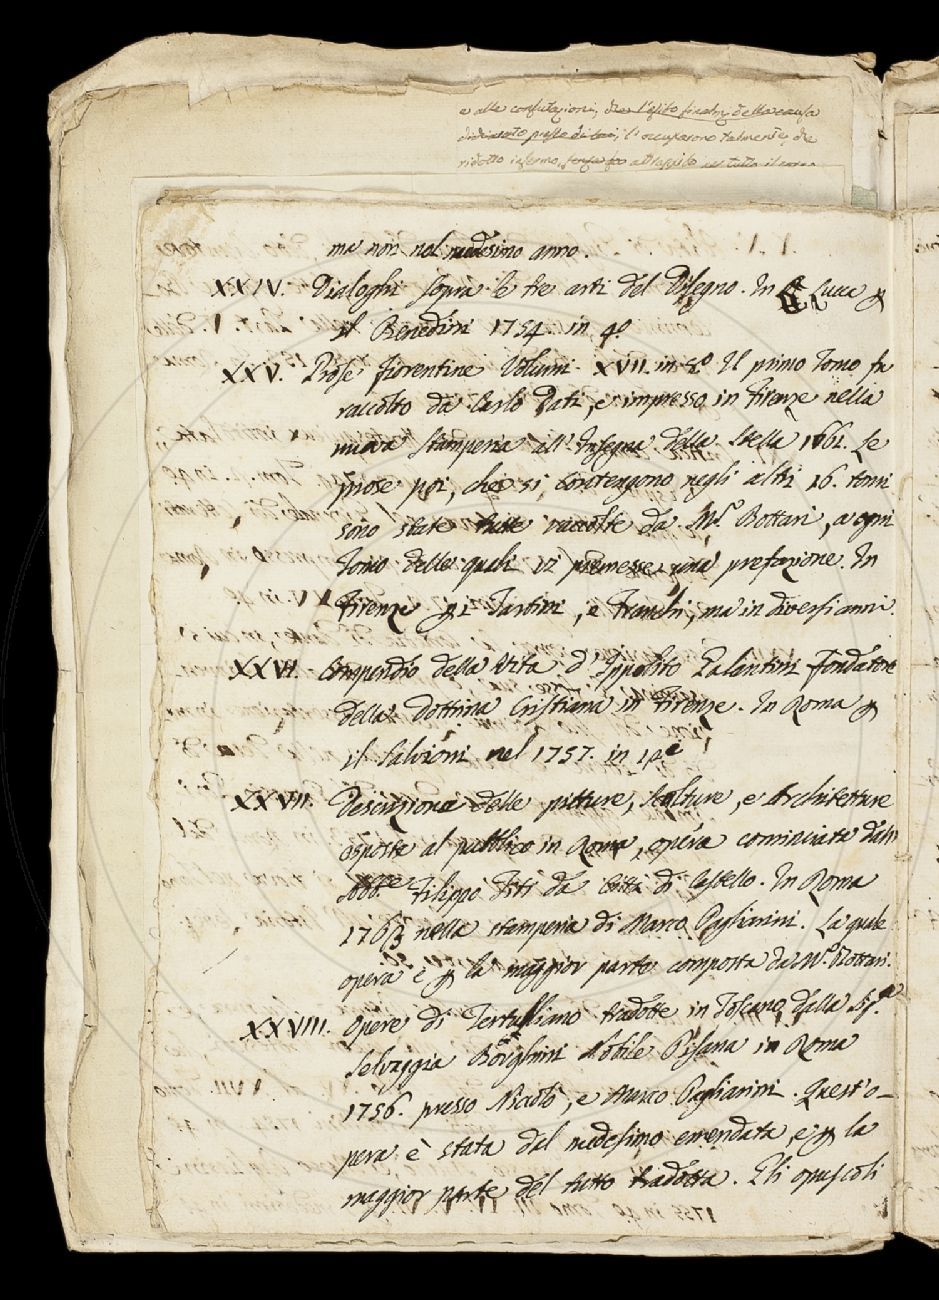 e alle confutazioni, che l'esito della causa
li occuparono talmente, che
ridotto infermo,
ma non nel medesimo anno.
XXIV. Dialoghi sopra le tre arti del Disegno. In Lucca p
il Benedini 1754. in 4º
XXV. Prose fiorentine Volumi XVII. in 8.º Il primo Tomo fu
raccolto da Carlo Dati, e impresso in Firenze nella
nuova stamperia all'Insegna della Stella 1661. Le
prose poi, che si contengono negli altri 16. tomi
sono state tutte raccolte da M.r Bottari, a ogni
Tomo delle quali vi premesse una prefazione. In
Firenze p i Tartini, e Franchi, ma in diversi anni.
XXVI. Compendio della Vita d'Ippolito Galantini fondatore
della Dottrina Cristiana in Firenze. In Roma p
il Salvioni nel 1757. in
XXVII. Descrizione delle pitture, sculture, e Architetture
esposte al pubblico in Roma, opera cominciata dall'
Abb.e Filippo Titi da Città di Castello. In Roma
1763 nella stamperia di Marco Pagliarini. La quale
opera è p la maggior parte composta da M.r Bottari.
XXVIII. Opere di Tertulliano tradotte in Toscano dalla Sig.ra
Selvaggia Borghini Nobile Pisana in Roma
1756. presso Niccolò, e Marco Pagliarini. Quest'o-
pera è stata dal medesimo emendata, e p la
maggior parte del tutto tradotta. Gli opuscoli